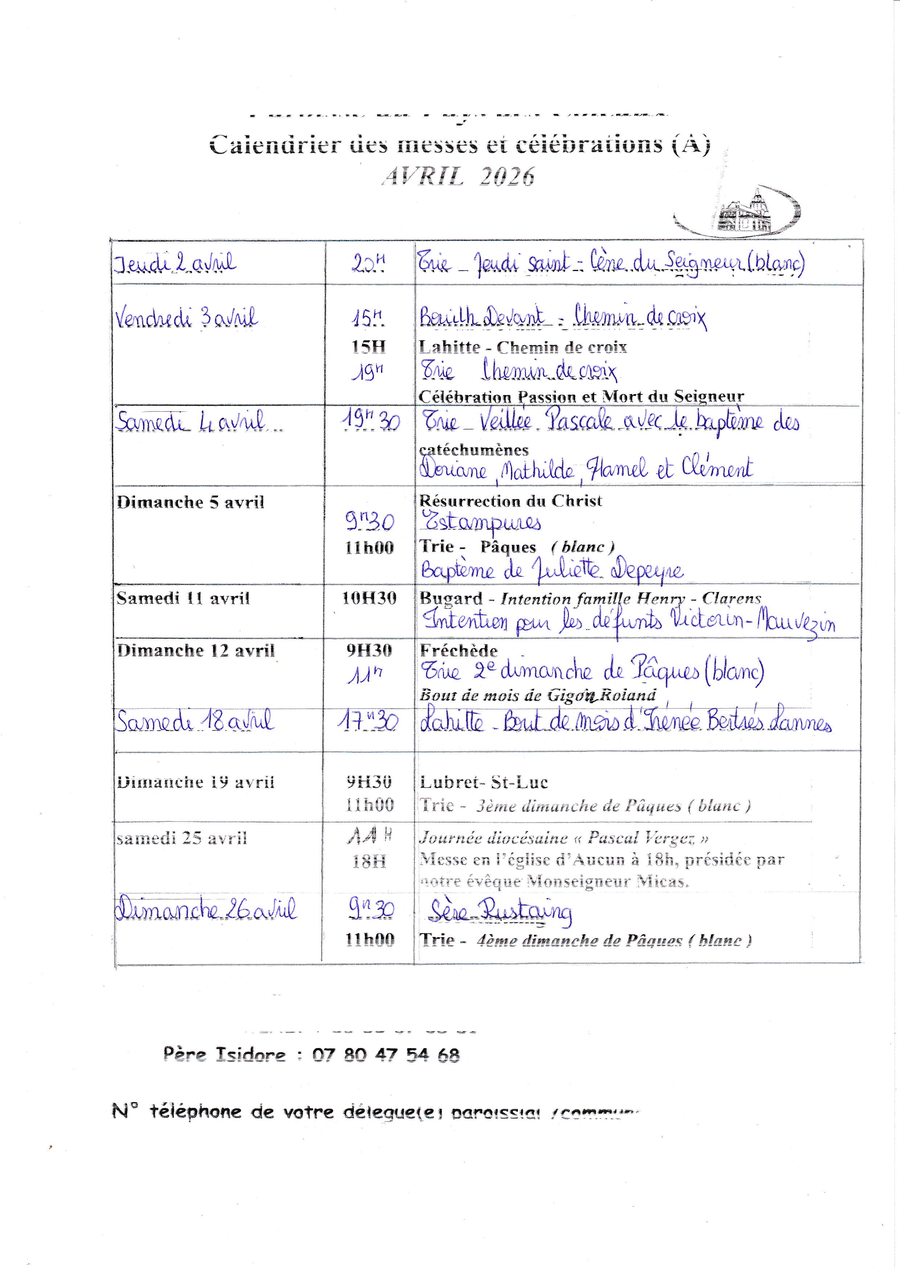 Calendrier des messes et célébrations (A)
AVRIL 2026
Jeudi 2 avril 20H Trie - Jeudi saint - Cène du Seigneur (blanc)
Vendredi 3 avril 15H Bouilh Devant - Chemin de croix
15H Lahitte - Chemin de croix
19H Trie Chemin de croix
Célébration Passion et Mort du Seigneur
Samedi 4 avril 19H30 Trie - Veillée Pascale avec le baptème des
catéchumènes
Doriane, Mathilde, Hamel et Clément
Dimanche 5 avril Résurrection du Christ
9H30 Estampures
11h00 Trie - Pâques (blanc)
Baptème de Juliette Depeyre
Samedi 11 avril 10H30 Bugard - Intention famille Henry - Clarens
Intention pour les défunts Victorin-Mauvezin
Dimanche 12 avril 9H30 Fréchède
11H Trie 2e dimanche de Pâques (blanc)
Bout de mois de Gigon Roland
Samedi 18 avril 17H30 Lahitte - Bout de mois d'Irénée Lannes
Dimanche 19 avril 9H30 Lubret- St-Luc
11h00 Trie - 3ème dimanche de Pâques (blanc)
samedi 25 avril Journée diocésaine « Pascal Vergez »
18H Messe en l'église d'Aucun à 18h, présidée par
notre évêque Monseigneur Micas.
Dimanche 26 avril 9H30 Sère-Rustaing
11h00 Trie - 4ème dimanche de Pâques (blanc)
Père Isidore : 07 80 47 54 68
N° téléphone de votre délégué(e) paroissial